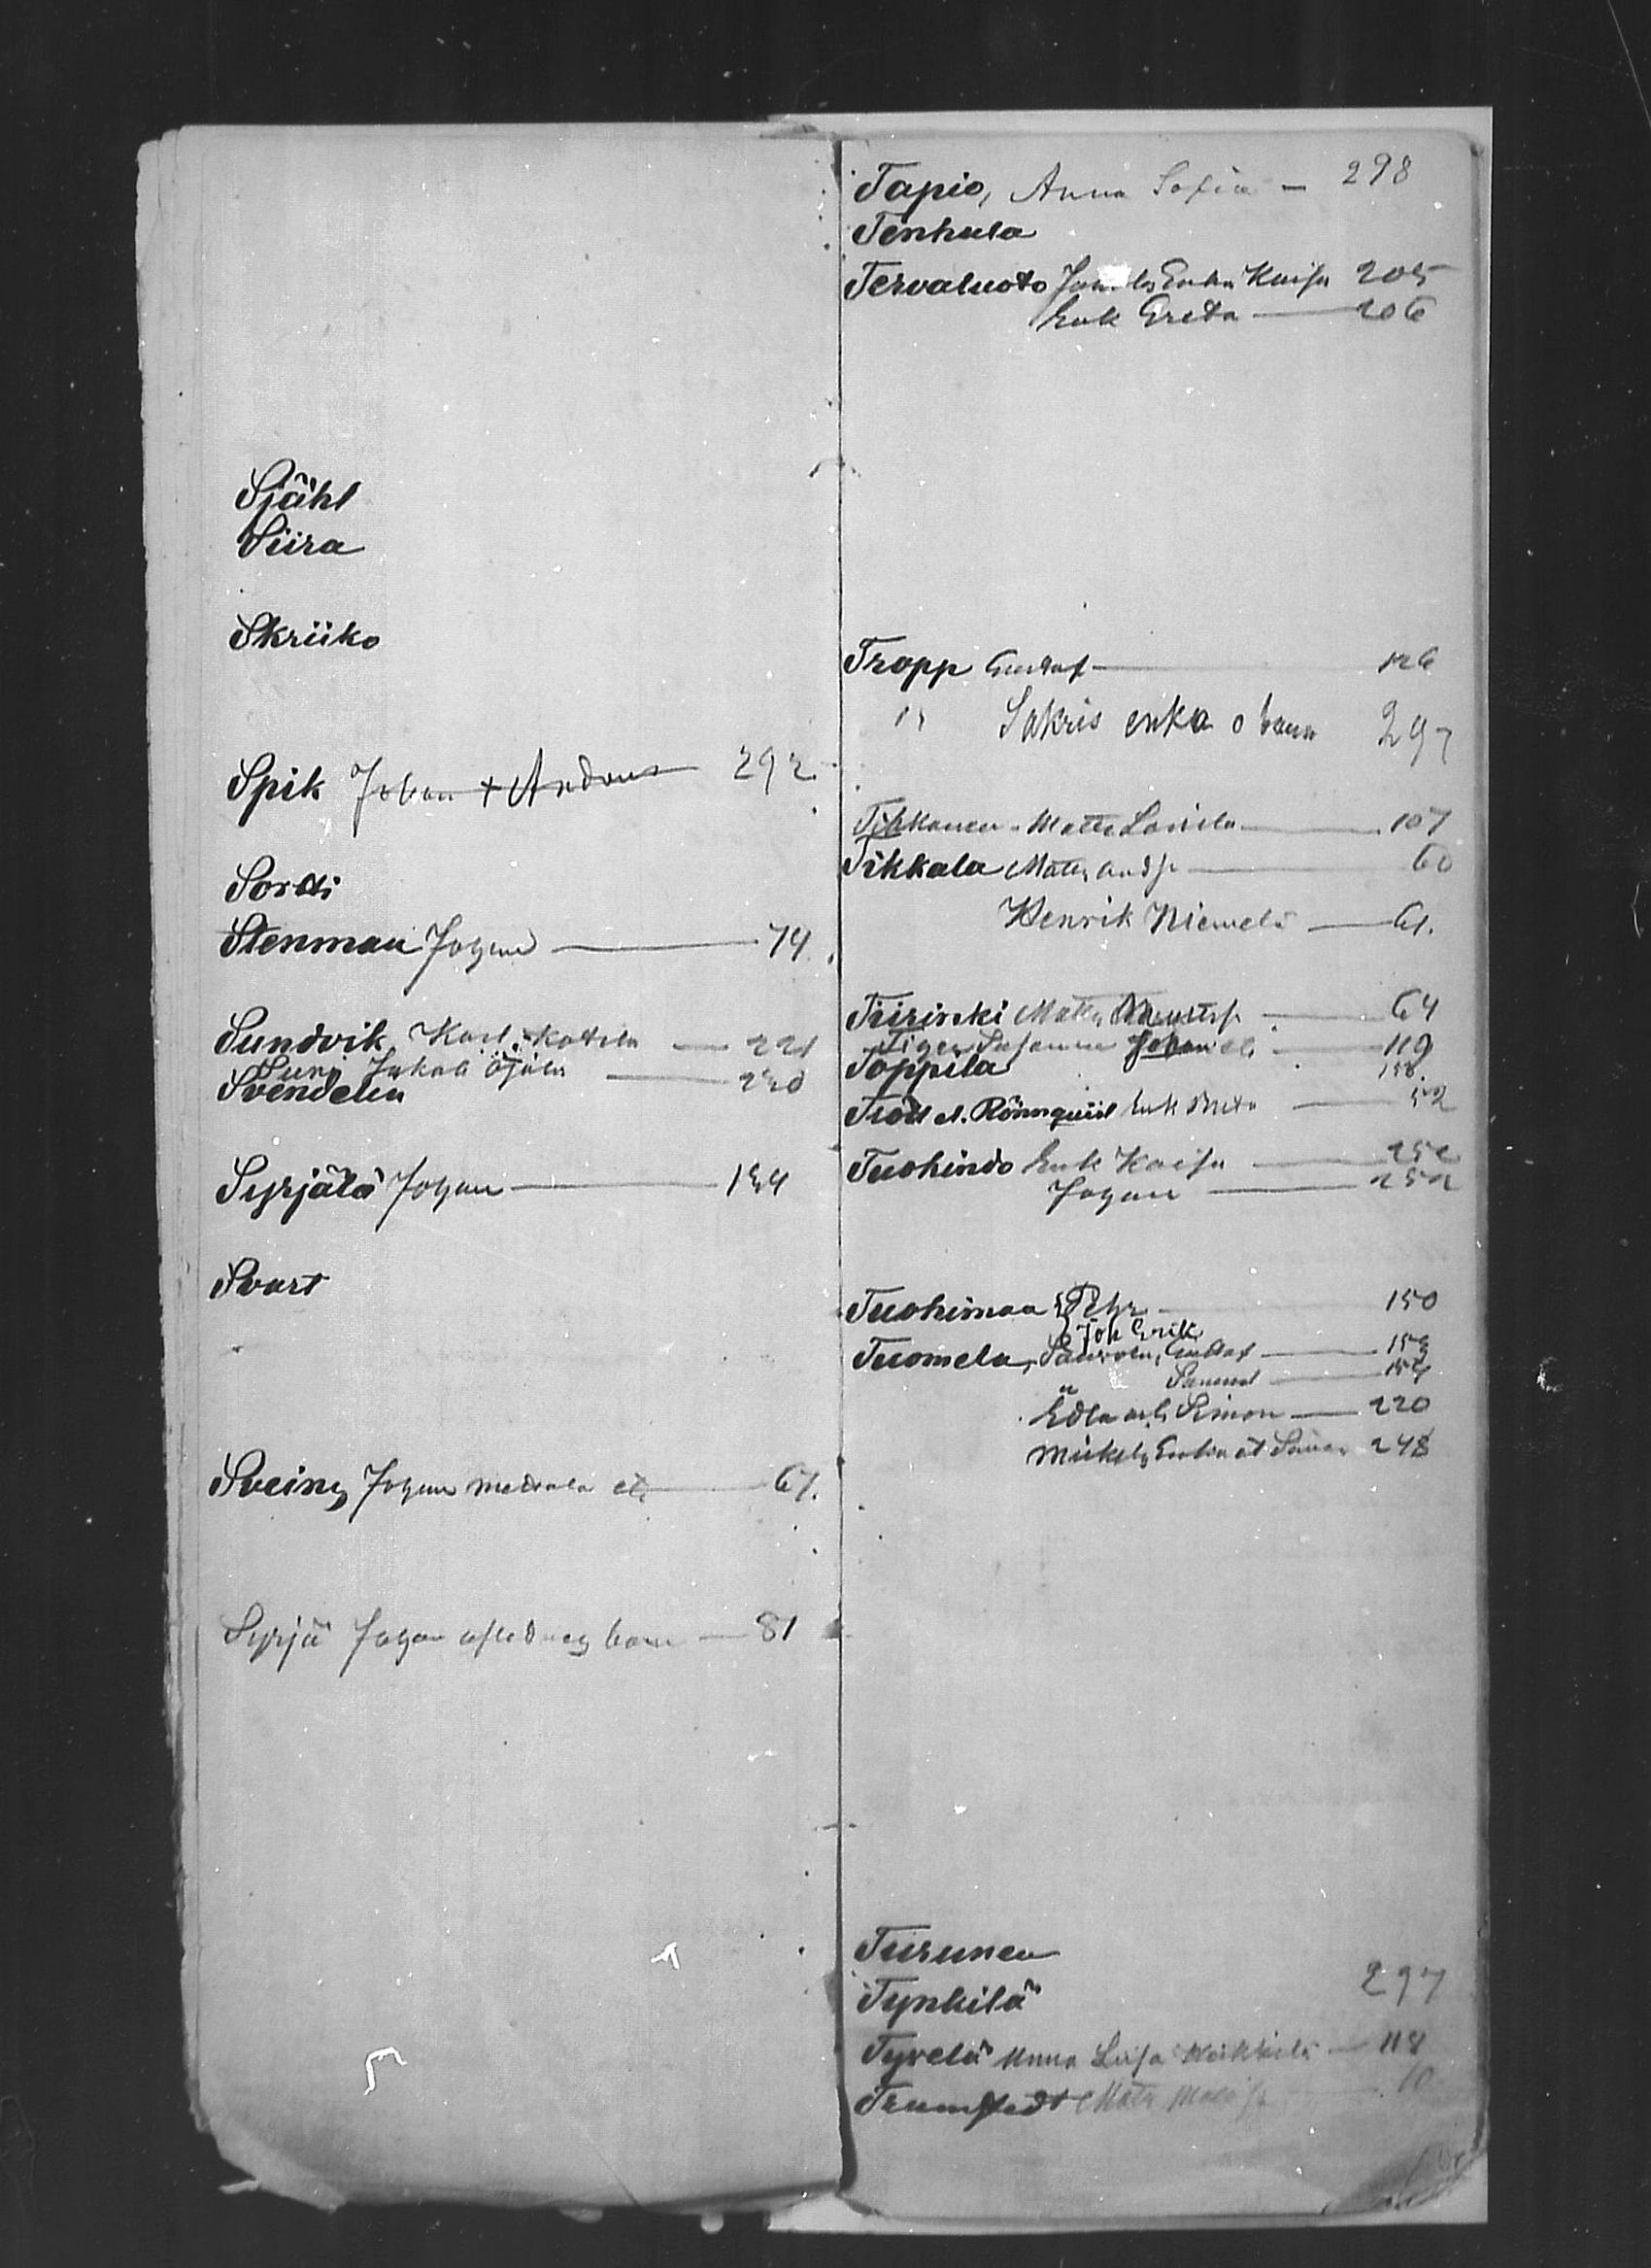 Sjähl
Siira
Skriiko
Spik Johan + Anders 292
Sordi
Stenman Johan 74.
Sundvik, Karl, Kotila 221
Suni Jakob Öjala 220
Svendelin
Syrjälä Johan 154
Svart
Sveins, Johan 67.
Syrjä Johan barn 81
Tapio, Anna Sofia 298
Tenhula
Tervaluoto Enka Kaisa 205
Enk Greta 206
Tropp Gustaf 126
" Sakris enka o barn 297
Tihkanen Matts 107
Tikkala Matts Andsr 60
Henrik Niemelä 61.
Tiirinki Matts 64
Tiger Susanna 119
Toppila 158
Rönnquist Enk Greta 52
Tuohindo Enk Kaisa 252
Johan 252
Tuohimaa Pehr 150
Joh Erik
Tuomela, Gustaf 153
" Samuel 154
Edla Simon 220
Mickels Enka 248
Turunen
Tynkilä 297
Tyrelä Anna Liisa Heikkilä 118
Trumstedt Matts 10